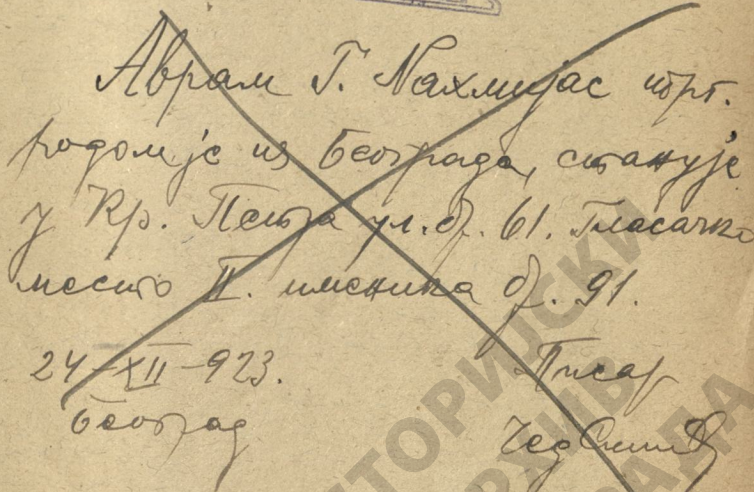 Аврам Г. Нахмијас трг.
родом је из Београда, станује
у Кр. Петра ул. бр. 61. Гласачко
место II. именика бр. 91.
24-XII-923.
Писар
Београд
Чед
ИСТОРИЈСКИ
АРХИВ
БЕОГРАДА